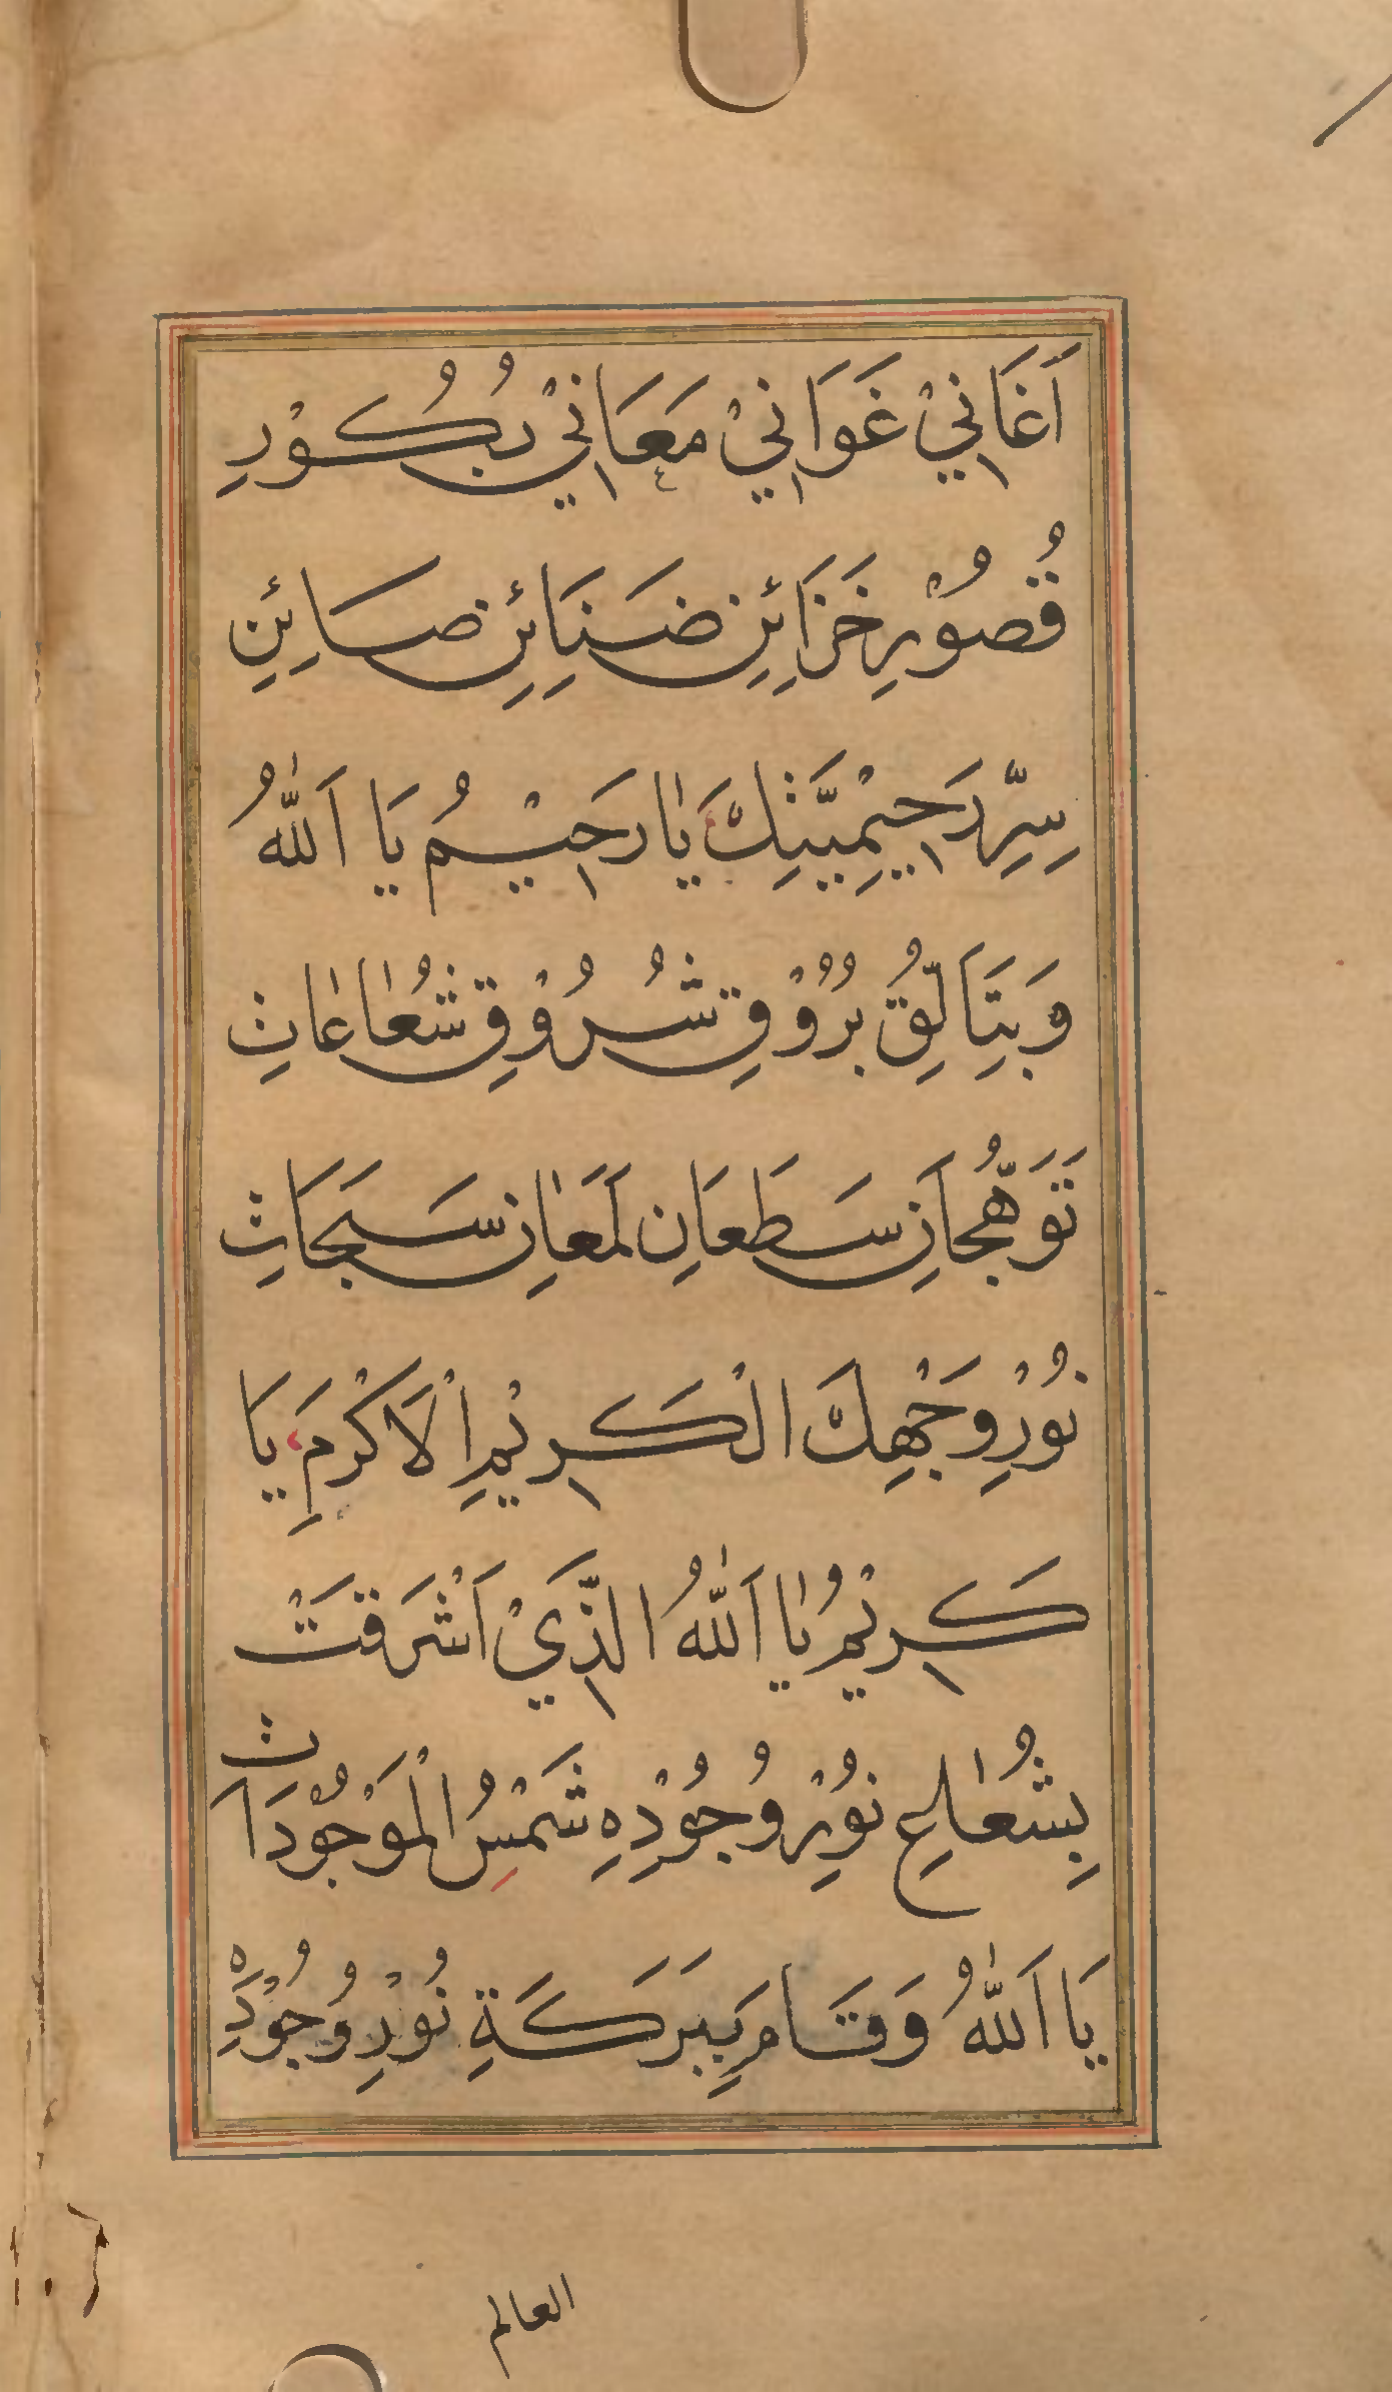 اَغَانِيْ غَوَانِيْ مَعَانِيْ بُكُوْرِ
قُصُوْرِ خَزَائِنِ ضَنَائِنِ ضَسَائِنِ
سِرِّ رَحِيْمِيَّتِكَ يَا رَحِيْمُ يَا اَللّٰهُ
وَبِتَاَلُّقِ بُرُوْقِ شُرُوْقِ شُعَاعَاتِ
تَوَهُّجَانِ سَطَعَانِ لَمَعَانِ سَبَحَاتِ
نُوْرِ وَجْهِكَ الْكَرِيْمِ الْاَكْرَمِ يَا
كَرِيْمُ يَا اَللّٰهُ الَّذِيْ اَشْرَقَتْ
بِشُعَاعِ نُوْرِ وُجُوْدِهِ شَمْسُ الْمَوْجُوْدَاتِ
يَا اَللّٰهُ وَقَامَ بِبَرَكَةِ نُوْرِ وُجُوْدِهِ
العالم